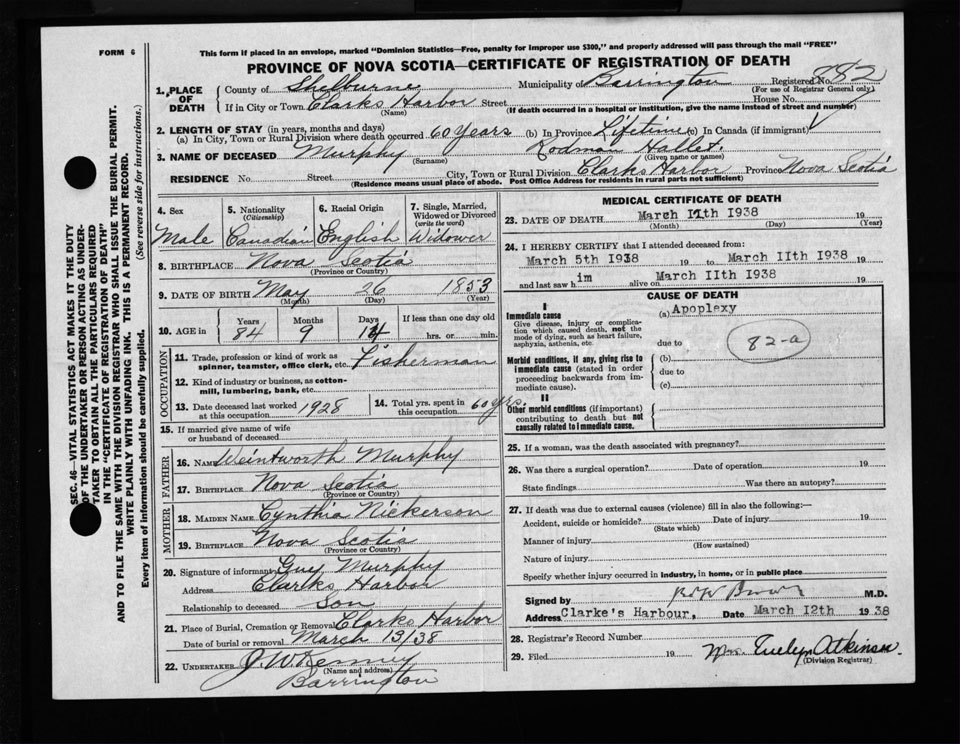 FORM 6
This form if placed in an envelope, marked "Dominion Statistics—Free, penalty for improper use $300," and properly addressed will pass through the mail "FREE"
PROVINCE OF NOVA SCOTIA—CERTIFICATE OF REGISTRATION OF DEATH
SEC. 46—VITAL STATISTICS ACT MAKES IT THE DUTY
OF THE UNDERTAKER OR PERSON ACTING AS UNDER-
TAKER TO OBTAIN ALL THE PARTICULARS REQUIRED
IN THE "CERTIFICATE OF REGISTRATION OF DEATH"
AND TO FILE THE SAME WITH THE DIVISION REGISTRAR WHO SHALL ISSUE THE BURIAL PERMIT.
WRITE PLAINLY WITH UNFADING INK. THIS IS A PERMANENT RECORD.
Every item of information should be carefully supplied. (See reverse side for instructions.)
1. PLACE OF DEATH County of Shelburne Municipality of Barrington Registered No. 882
(For use of Registrar General only)
If in City or Town Clarks Harbor Street House No.
(Name) (If death occurred in a hospital or institution, give the name instead of street and number)
2. LENGTH OF STAY (in years, months and days)
(a) In City, Town or Rural Division where death occurred 60 Years (b) In Province Lifetime (c) In Canada (if immigrant)
3. NAME OF DECEASED Murphy Rodman Hallet.
(Surname) (Given name or names)
RESIDENCE No. Street City, Town or Rural Division Clarks Harbor Province Nova Scotia
(Residence means usual place of abode. Post Office Address for residents in rural parts not sufficient)
4. Sex 5. Nationality (Citizenship) 6. Racial Origin 7. Single, Married, Widowed or Divorced (write the word)
Male Canadian English Widower
8. BIRTHPLACE Nova Scotia
(Province or Country)
9. DATE OF BIRTH May 26 1853
(Month) (Day) (Year)
10. AGE in Years Months Days If less than one day old
84 9 hrs. or min.
OCCUPATION
11. Trade, profession or kind of work as spinner, teamster, office clerk, etc. Fisherman
12. Kind of industry or business, as cotton-mill, lumbering, bank, etc.
13. Date deceased last worked at this occupation 1928 14. Total yrs. spent in this occupation 60 yrs.
15. If married give name of wife or husband of deceased
FATHER
16. NAME Weintworth Murphy
17. BIRTHPLACE Nova Scotia
(Province or Country)
MOTHER
18. MAIDEN NAME Cynthia Nickerson
19. BIRTHPLACE Nova Scotia
(Province or Country)
20. Signature of informant Guy Murphy
Address Clarks Harbor
Relationship to deceased Son
21. Place of Burial, Cremation or Removal Clarks Harbor
Date of burial or removal March 13/38
22. UNDERTAKER J. W. Kenney
(Name and address)
Barrington
MEDICAL CERTIFICATE OF DEATH
23. DATE OF DEATH March 11th 1938 19
(Month) (Day) (Year)
24. I HEREBY CERTIFY that I attended deceased from:
March 5th 1938 19 to March 11th 1938 19
and last saw him alive on March 11th 1938 19
CAUSE OF DEATH
I
Immediate cause (a) Apoplexy
Give disease, injury or complication which caused death, not the mode of dying, such as heart failure, asphyxia, asthenia, etc. due to
82-a
Morbid conditions, if any, giving rise to immediate cause (stated in order proceeding backwards from immediate cause). (b)
due to
(c)
II
Other morbid conditions (if important) contributing to death but not causally related to immediate cause.
25. If a woman, was the death associated with pregnancy?
26. Was there a surgical operation? Date of operation 19
State findings Was there an autopsy?
27. If death was due to external causes (violence) fill in also the following:—
Accident, suicide or homicide? Date of injury 19
(State which)
Manner of injury
(How sustained)
Nature of injury
Specify whether injury occurred in industry, in home, or in public place
Signed by M.D.
Address Clarke's Harbour, Date March 12th 1938
28. Registrar's Record Number
29. Filed 19 Mrs. Evelyn Atkinson.
(Division Registrar)